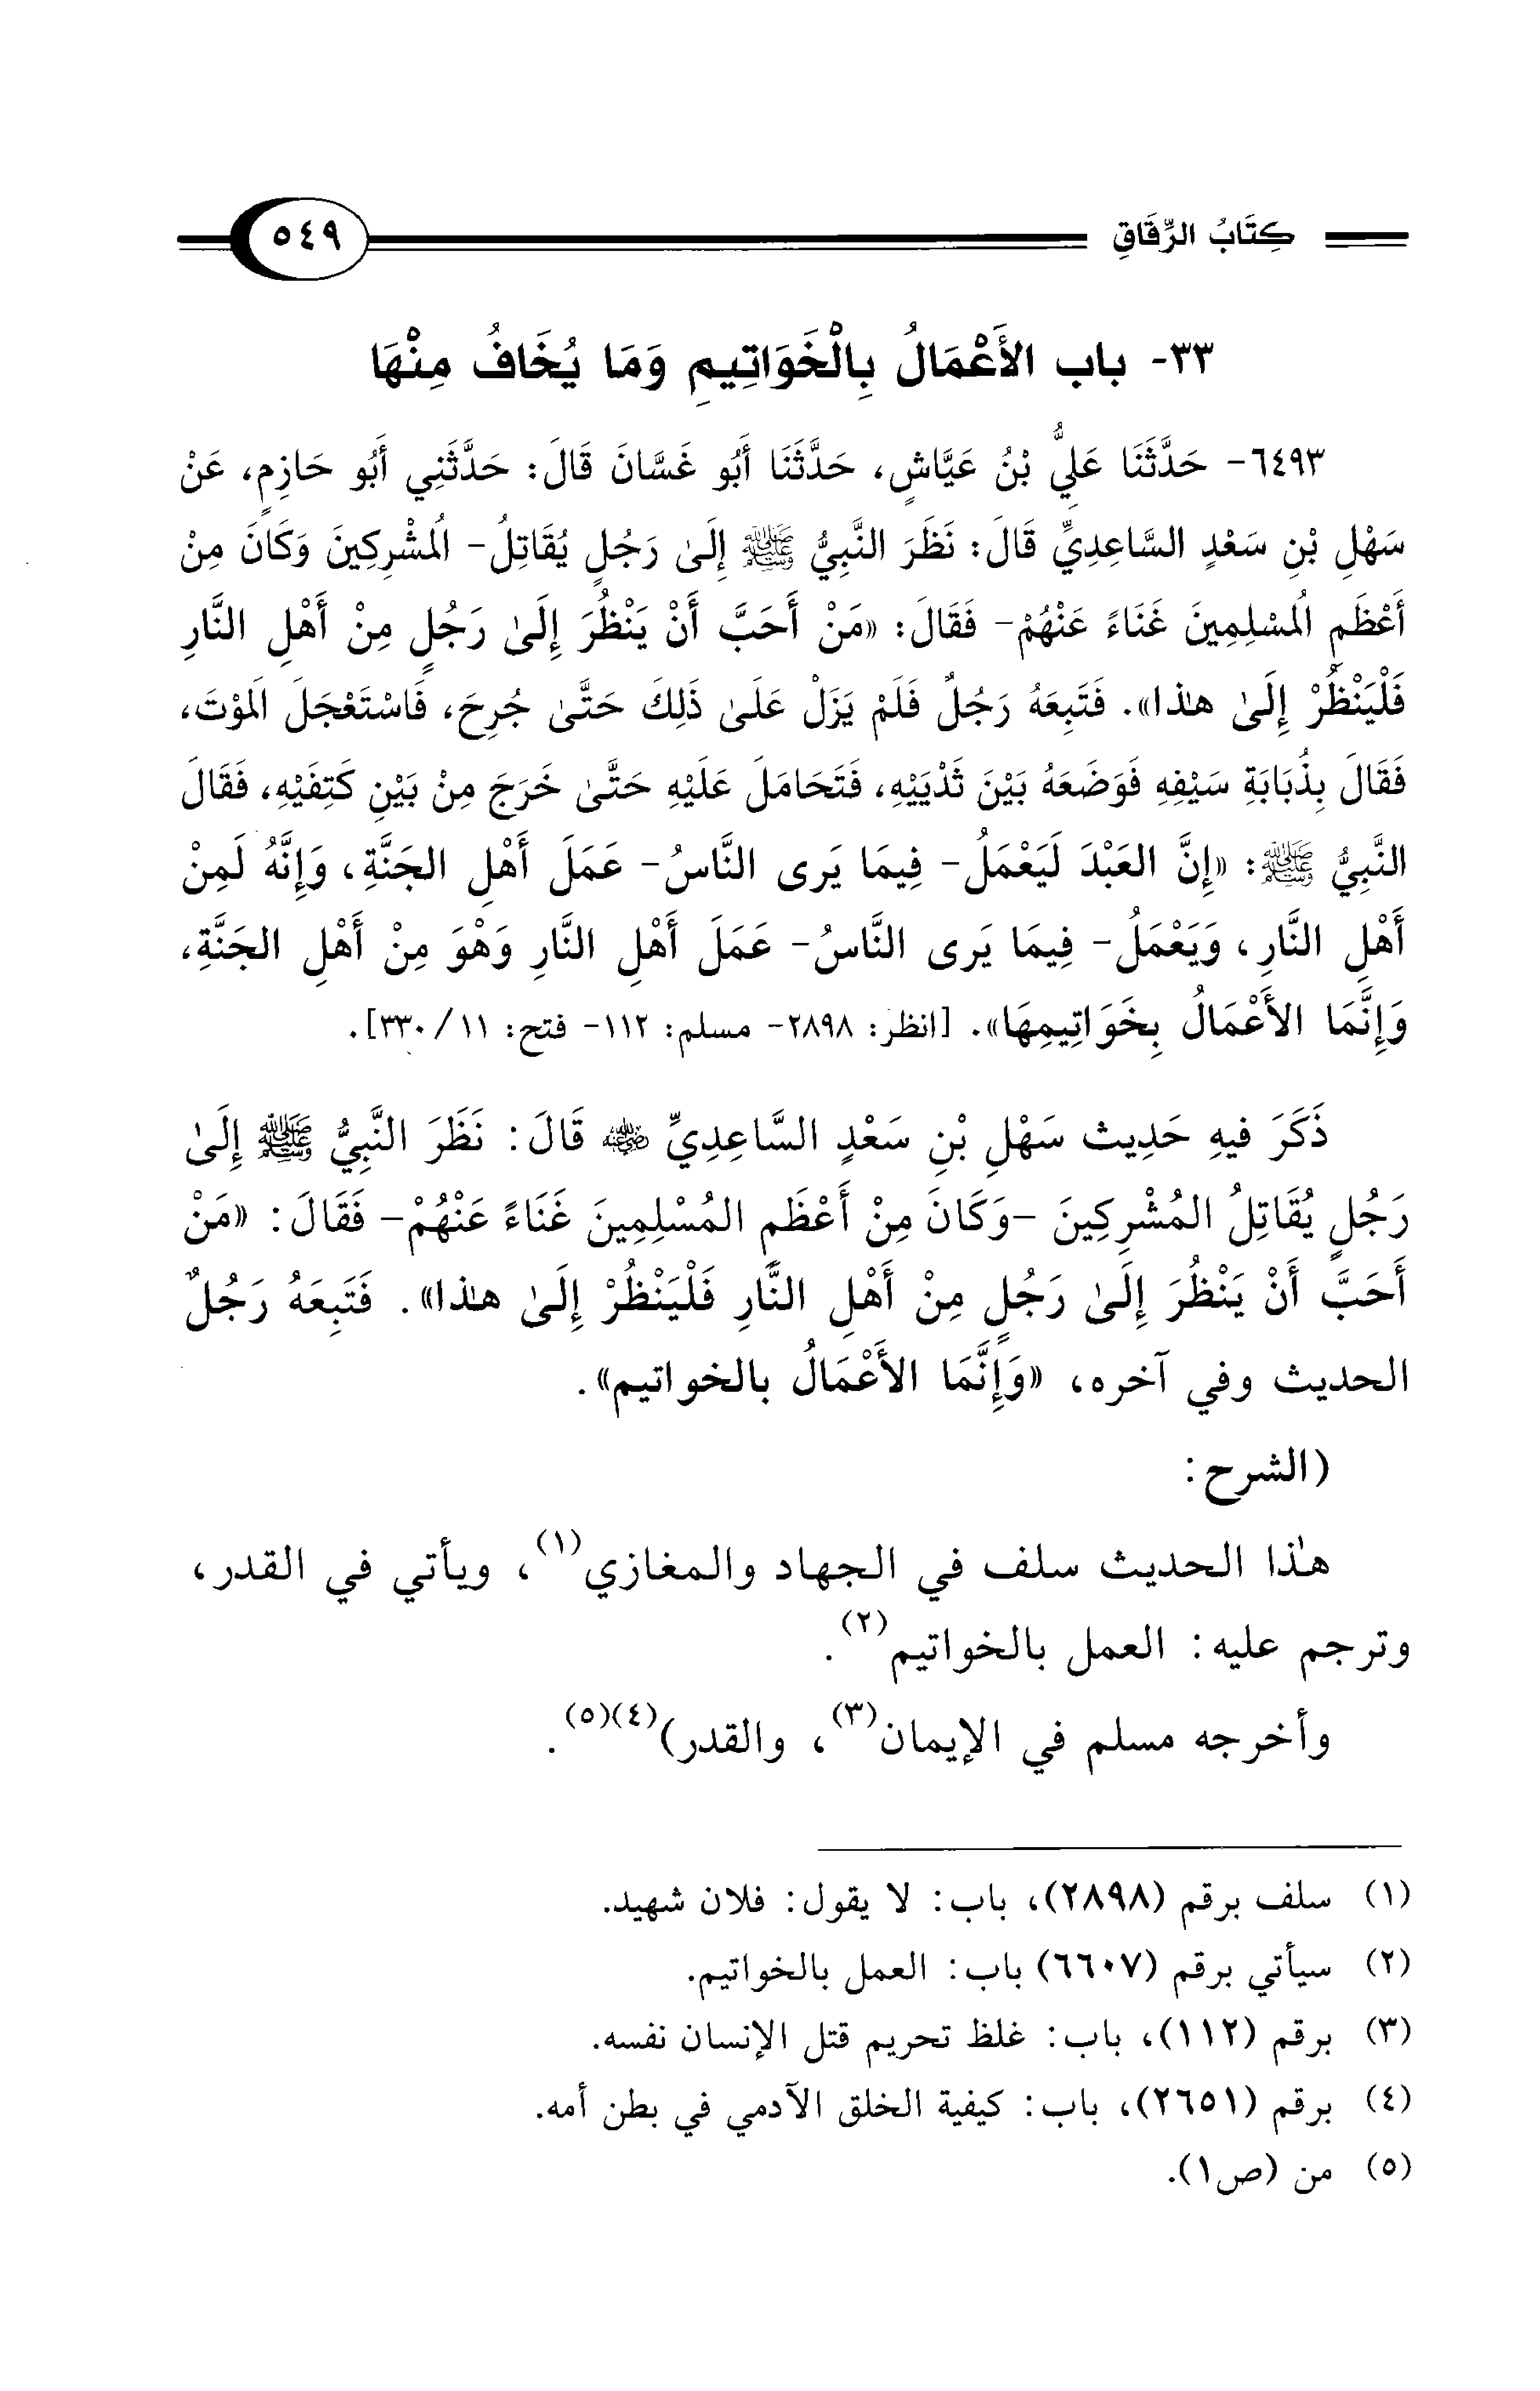 كِتَابُ الرِّقَاقِ
٥٤٩
٣٣- باب الأَعْمَالُ بِالْخَوَاتِيمِ وَمَا يُخَافُ مِنْهَا
٦٤٩٣- حَدَّثَنَا عَلِيُّ بْنُ عَيَّاشٍ، حَدَّثَنَا أَبُو غَسَّانَ قَالَ: حَدَّثَنِي أَبُو حَازِمٍ، عَنْ
سَهْلِ بْنِ سَعْدٍ السَّاعِدِيِّ قَالَ: نَظَرَ النَّبِيُّ ﷺ إِلَىٰ رَجُلٍ يُقَاتِلُ- الُمشْرِكِينَ وَكَانَ مِنْ
أَعْظَمِ الُمسْلِمِينَ غَنَاءً عَنْهُمْ- فَقَالَ: «مَنْ أَحَبَّ أَنْ يَنْظُرَ إِلَىٰ رَجُلٍ مِنْ أَهْلِ النَّارِ
فَلْيَنْظُرْ إِلَىٰ هذا». فَتَبِعَهُ رَجُلٌ فَلَمْ يَزَلْ عَلَىٰ ذَلِكَ حَتَّىٰ جُرِحَ، فَاسْتَعْجَلَ الَموْتَ،
فَقَالَ بِذُبَابَةِ سَيْفِهِ فَوَضَعَهُ بَيْنَ ثَدْيَيْهِ، فَتَحَامَلَ عَلَيْهِ حَتَّىٰ خَرَجَ مِنْ بَيْنِ كَتِفَيْهِ، فَقَالَ
النَّبِيُّ ﷺ: «إِنَّ العَبْدَ لَيَعْمَلُ- فِيمَا يَرى النَّاسُ- عَمَلَ أَهْلِ الجَنَّةِ، وَإِنَّهُ لَمِنْ
أَهْلِ النَّارِ، وَيَعْمَلُ- فِيمَا يَرى النَّاسُ- عَمَلَ أَهْلِ النَّارِ وَهْوَ مِنْ أَهْلِ الجَنَّةِ،
وَإِنَّمَا الأَعْمَالُ بِخَوَاتِيمِهَا». [انظر: ٢٨٩٨- مسلم: ١١٢- فتح: ١١/ ٣٣٠].
ذَكَرَ فيهِ حَدِيث سَهْلِ بْنِ سَعْدٍ السَّاعِدِيِّ رضي الله عنه قَالَ: نَظَرَ النَّبِيُّ ﷺ إِلَىٰ
رَجُلٍ يُقَاتِلُ المُشْرِكِينَ -وَكَانَ مِنْ أَعْظَمِ المُسْلِمِينَ غَنَاءً عَنْهُمْ- فَقَالَ: «مَنْ
أَحَبَّ أَنْ يَنْظُرَ إِلَىٰ رَجُلٍ مِنْ أَهْلِ النَّارِ فَلْيَنْظُرْ إِلَىٰ هٰذا». فَتَبِعَهُ رَجُلٌ
الحديث وفي آخره، «وَإِنَّمَا الأَعْمَالُ بالخواتيم».
(الشرح:
هٰذا الحديث سلف في الجهاد والمغازي(١)، ويأتي في القدر،
وترجم عليه: العمل بالخواتيم(٢).
وأخرجه مسلم في الإيمان(٣)، والقدر)(٤)(٥).
(١) سلف برقم (٢٨٩٨)، باب: لا يقول: فلان شهيد.
(٢) سيأتي برقم (٦٦٠٧) باب: العمل بالخواتيم.
(٣) برقم (١١٢)، باب: غلظ تحريم قتل الإنسان نفسه.
(٤) برقم (٢٦٥١)، باب: كيفية الخلق الآدمي في بطن أمه.
(٥) من (ص١).